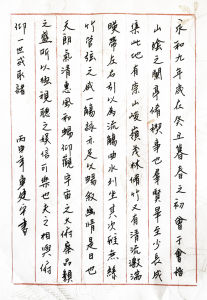 永和九年歲在癸丑暮春之初會于會稽
山陰之蘭亭脩禊事也群賢畢至少長咸
集此地有崇山峻領茂林脩竹又有清流激湍
暎帶左右引以為流觴曲水列坐其次雖無絲
竹管弦之盛一觴詠亦足以暢敘幽情是日也
天朗氣清惠風和暢仰觀宇宙之大俯察品類
之盛所以極視聽之娛信可樂也夫之相與俯
仰一世或取諸 丙申年 書